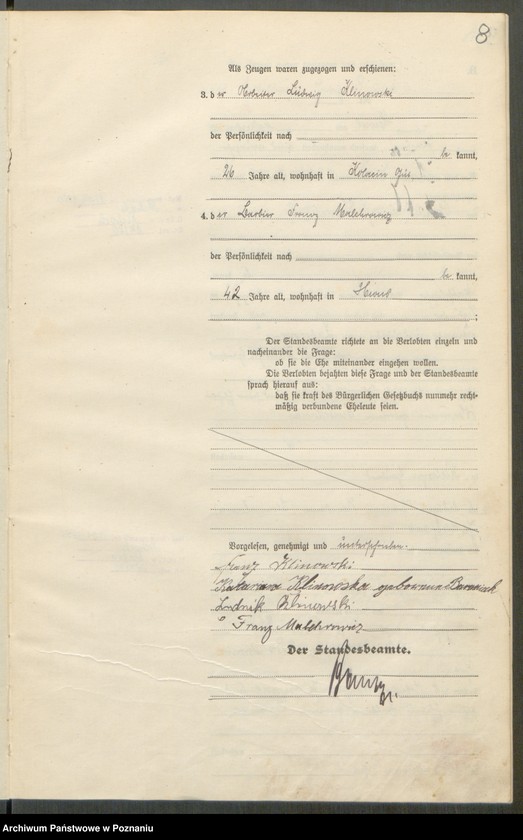 8
Als Zeugen waren zugezogen und erschienen:
3. der Arbeiter Ludwig Klinowski
der Persönlichkeit nach
be kannt,
26 Jahre alt, wohnhaft in
4. der Barbier Franz Malchrowicz
der Persönlichkeit nach
be kannt,
42 Jahre alt, wohnhaft in
;
Der Standesbeamte richtete an die Verlobten einzeln und
nacheinander die Frage:
ob sie die Ehe miteinander eingehen wollen.
Die Verlobten bejahten diese Frage und der Standesbeamte
sprach hierauf aus:
daß sie kraft des Bürgerlichen Gesetzbuchs nunmehr recht-
mäßig verbundene Eheleute seien.
Vorgelesen, genehmigt und unterschrieben.
Franz Klinowski
Klinowska geborenna
Ludwik Klinowski
Franz Malchrowicz
Der Standesbeamte.
Archiwum Państwowe w Poznaniu